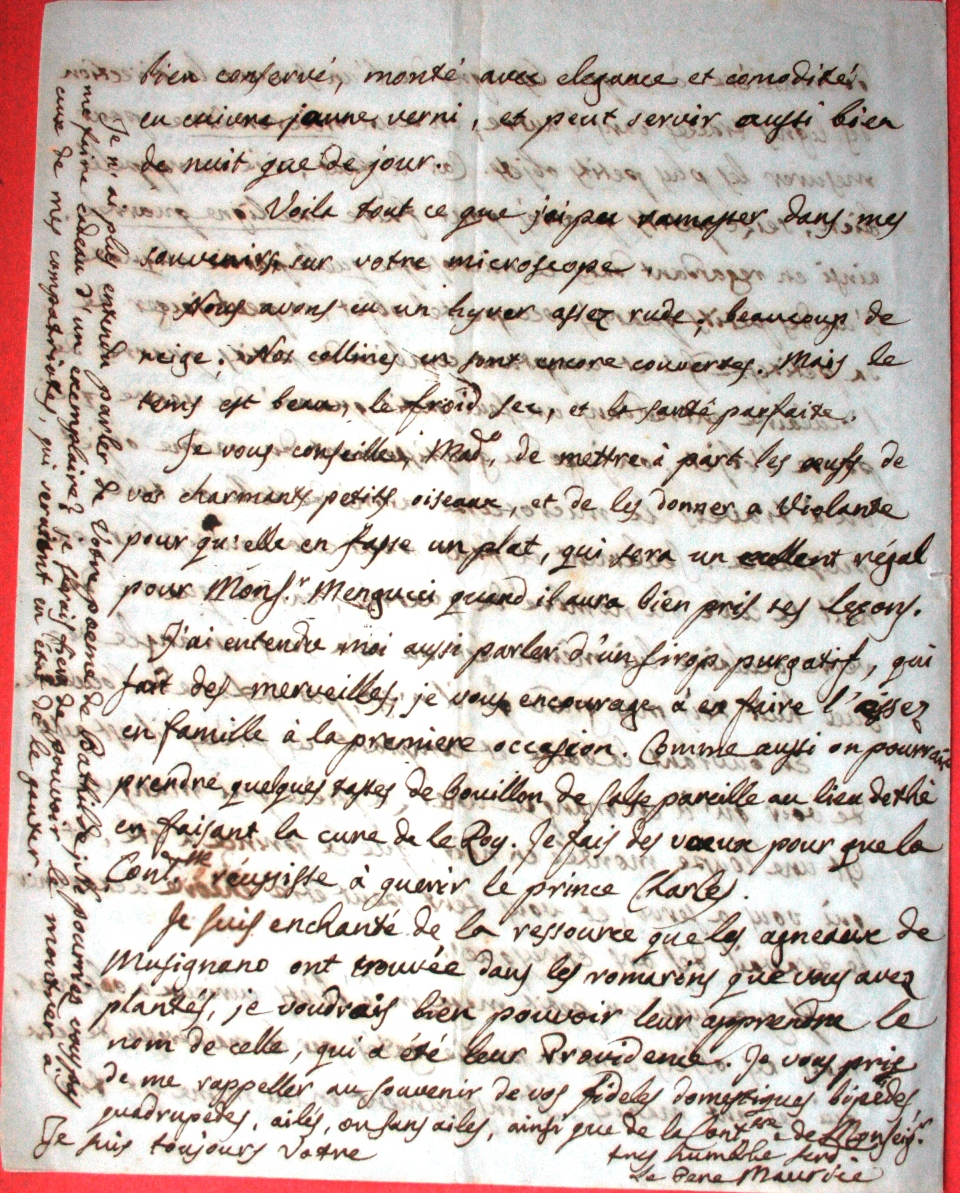 bien conservé, monté avec elegance et comodité,
en cuivre jaune verni, et peut servir aussi bien
de nuit que de jour.
Voila tout ce que j'ai pu ramasser dans mes
souvenirs, sur votre microscope
Nous avons eu un hyver assez rude, beaucoup de
neige. Nos collines en sont encore couvertes. Mais le
tems est beau, le froid sec, et la santé parfaite.
Je vous conseille, Mad.e, de mettre à part les œufs de
vos charmants petits oiseaux, et de les donner a Violante
pour qu'elle en fasse un plat, qui sera un exellent régal
pour Mons.r Mengucci quand il aura bien pris ses leçons.
J'ai entendu moi aussi parler d'un sirop purgatif, qui
fait des merveilles; je vous encourage à en faire l'
en famille à la premiere occasion. Comme aussi on pourrait
prendre quelques tasses de bouillon de salse pareille au lieu de thé
en faisant la cure de le Roy. Je fais des vœux pour que la
Cont.sse réussisse à guerir le prince Charles.
Je suis enchanté de la ressource que les agneaux de
Musignano ont trouvée dans les romarins que vous avez
plantés, je voudrais bien pouvoir leur apprendre le
nom de celle, qui a été leur Providence. Je vous prie
de me rappeller au souvenir de vos fideles domestiques bipedes,
quadrupedes, ailés, ou sans ailes, ainsi que de la Cont.sse, de Monseig.r
Je suis toujours Votre
tres humble serv.
Le Pere Maurice
Je n'ai plus entendu parler de Votre poeme de Bathilde; ne pourriés vous pas
me faire cadeau d'un exemplaire? Je serais fier de pouvoir le montrer à
ceux de mes compatriotes, qui seraient en état de le gouter.